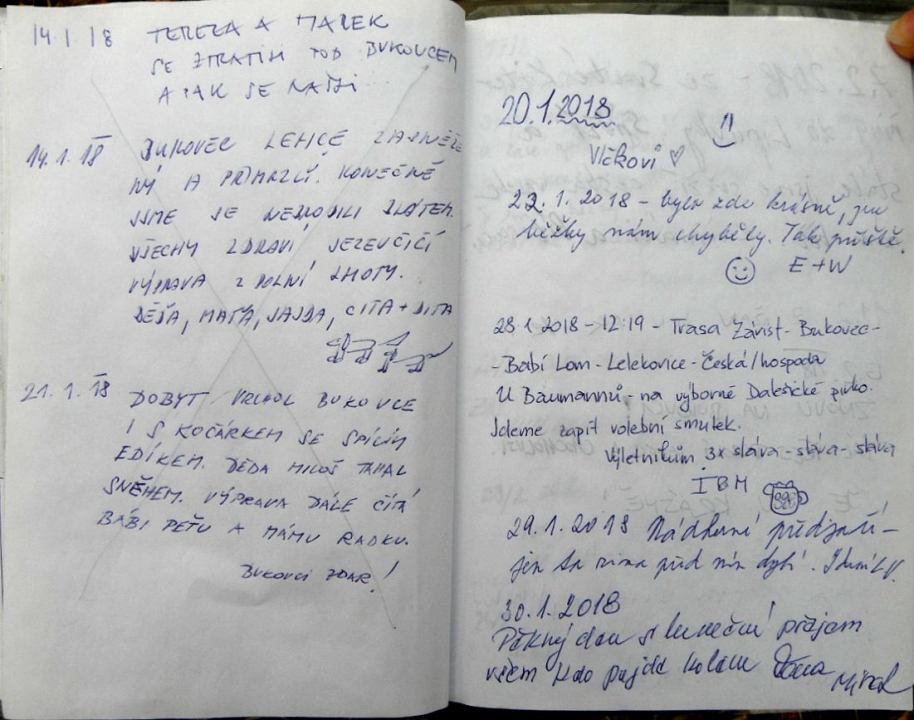 14.1.18 TEREZA A MAREK
SE ZTRATILI POD BUKOVCEM
A PAK SE NAŠLI...
14.1.18 BUKOVEC LEHCE ZASNĚŽE
NÝ A PŘIMRZLÝ. KONEČNĚ
JSME SE NEBRODILI BLÁTEM.
VŠECHY ZDRAVÍ JEZEVČÍČÍ
VÝPRAVA Z DOLNÍ LHOTY.
DÉĎA, MAŤA, JAJDA, CITA + DITA
21.1.18 DOBYT VRCHOL BUKOVCE
I S KOČÁRKEM SE SPÍCÍM
EDÍKEM. DĚDA MILOŠ TAHAL
SNĚHEM. VÝPRAVA DÁLE ČÍTÁ
BÁBI PEŤU A MÁMU RADKU.
BUKOVCI ZDAR!
20.1.2018
Vlčkovi ♡
22.1.2018 - bylo zde krásně, jen
běžky nám chyběly. Tak příště.
E+W
28.1.2018 - 12:19 - Trasa Závist - Bukovec -
- Babí Lom - Lelekovice - Česká/hospoda
U Baumannů - na výborné Dalešické pivko.
Jdeme zapít volební smutek.
Výletníkům 3x sláva - sláva - sláva
IBM
29.1.2018 Nádherné předjaří -
jen ta zima před ním chybí.
30.1.2018
Pěkný den sluneční přejem
všem kdo půjde kolem Dana
Mirek